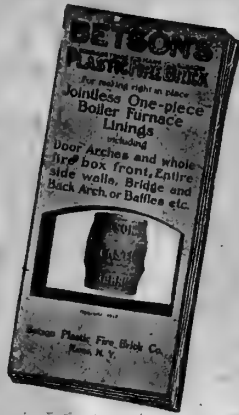 BETSON'S
PLASTIC FIRE BRICK
For making right in place
Jointless One-piece
Boiler Furnace
Linings
including
Door Arches and whole
fire box front, Entire
side walls, Bridge and
Back Arch, or Baffles etc.
Betson Plastic Fire Brick Co.
N. Y.